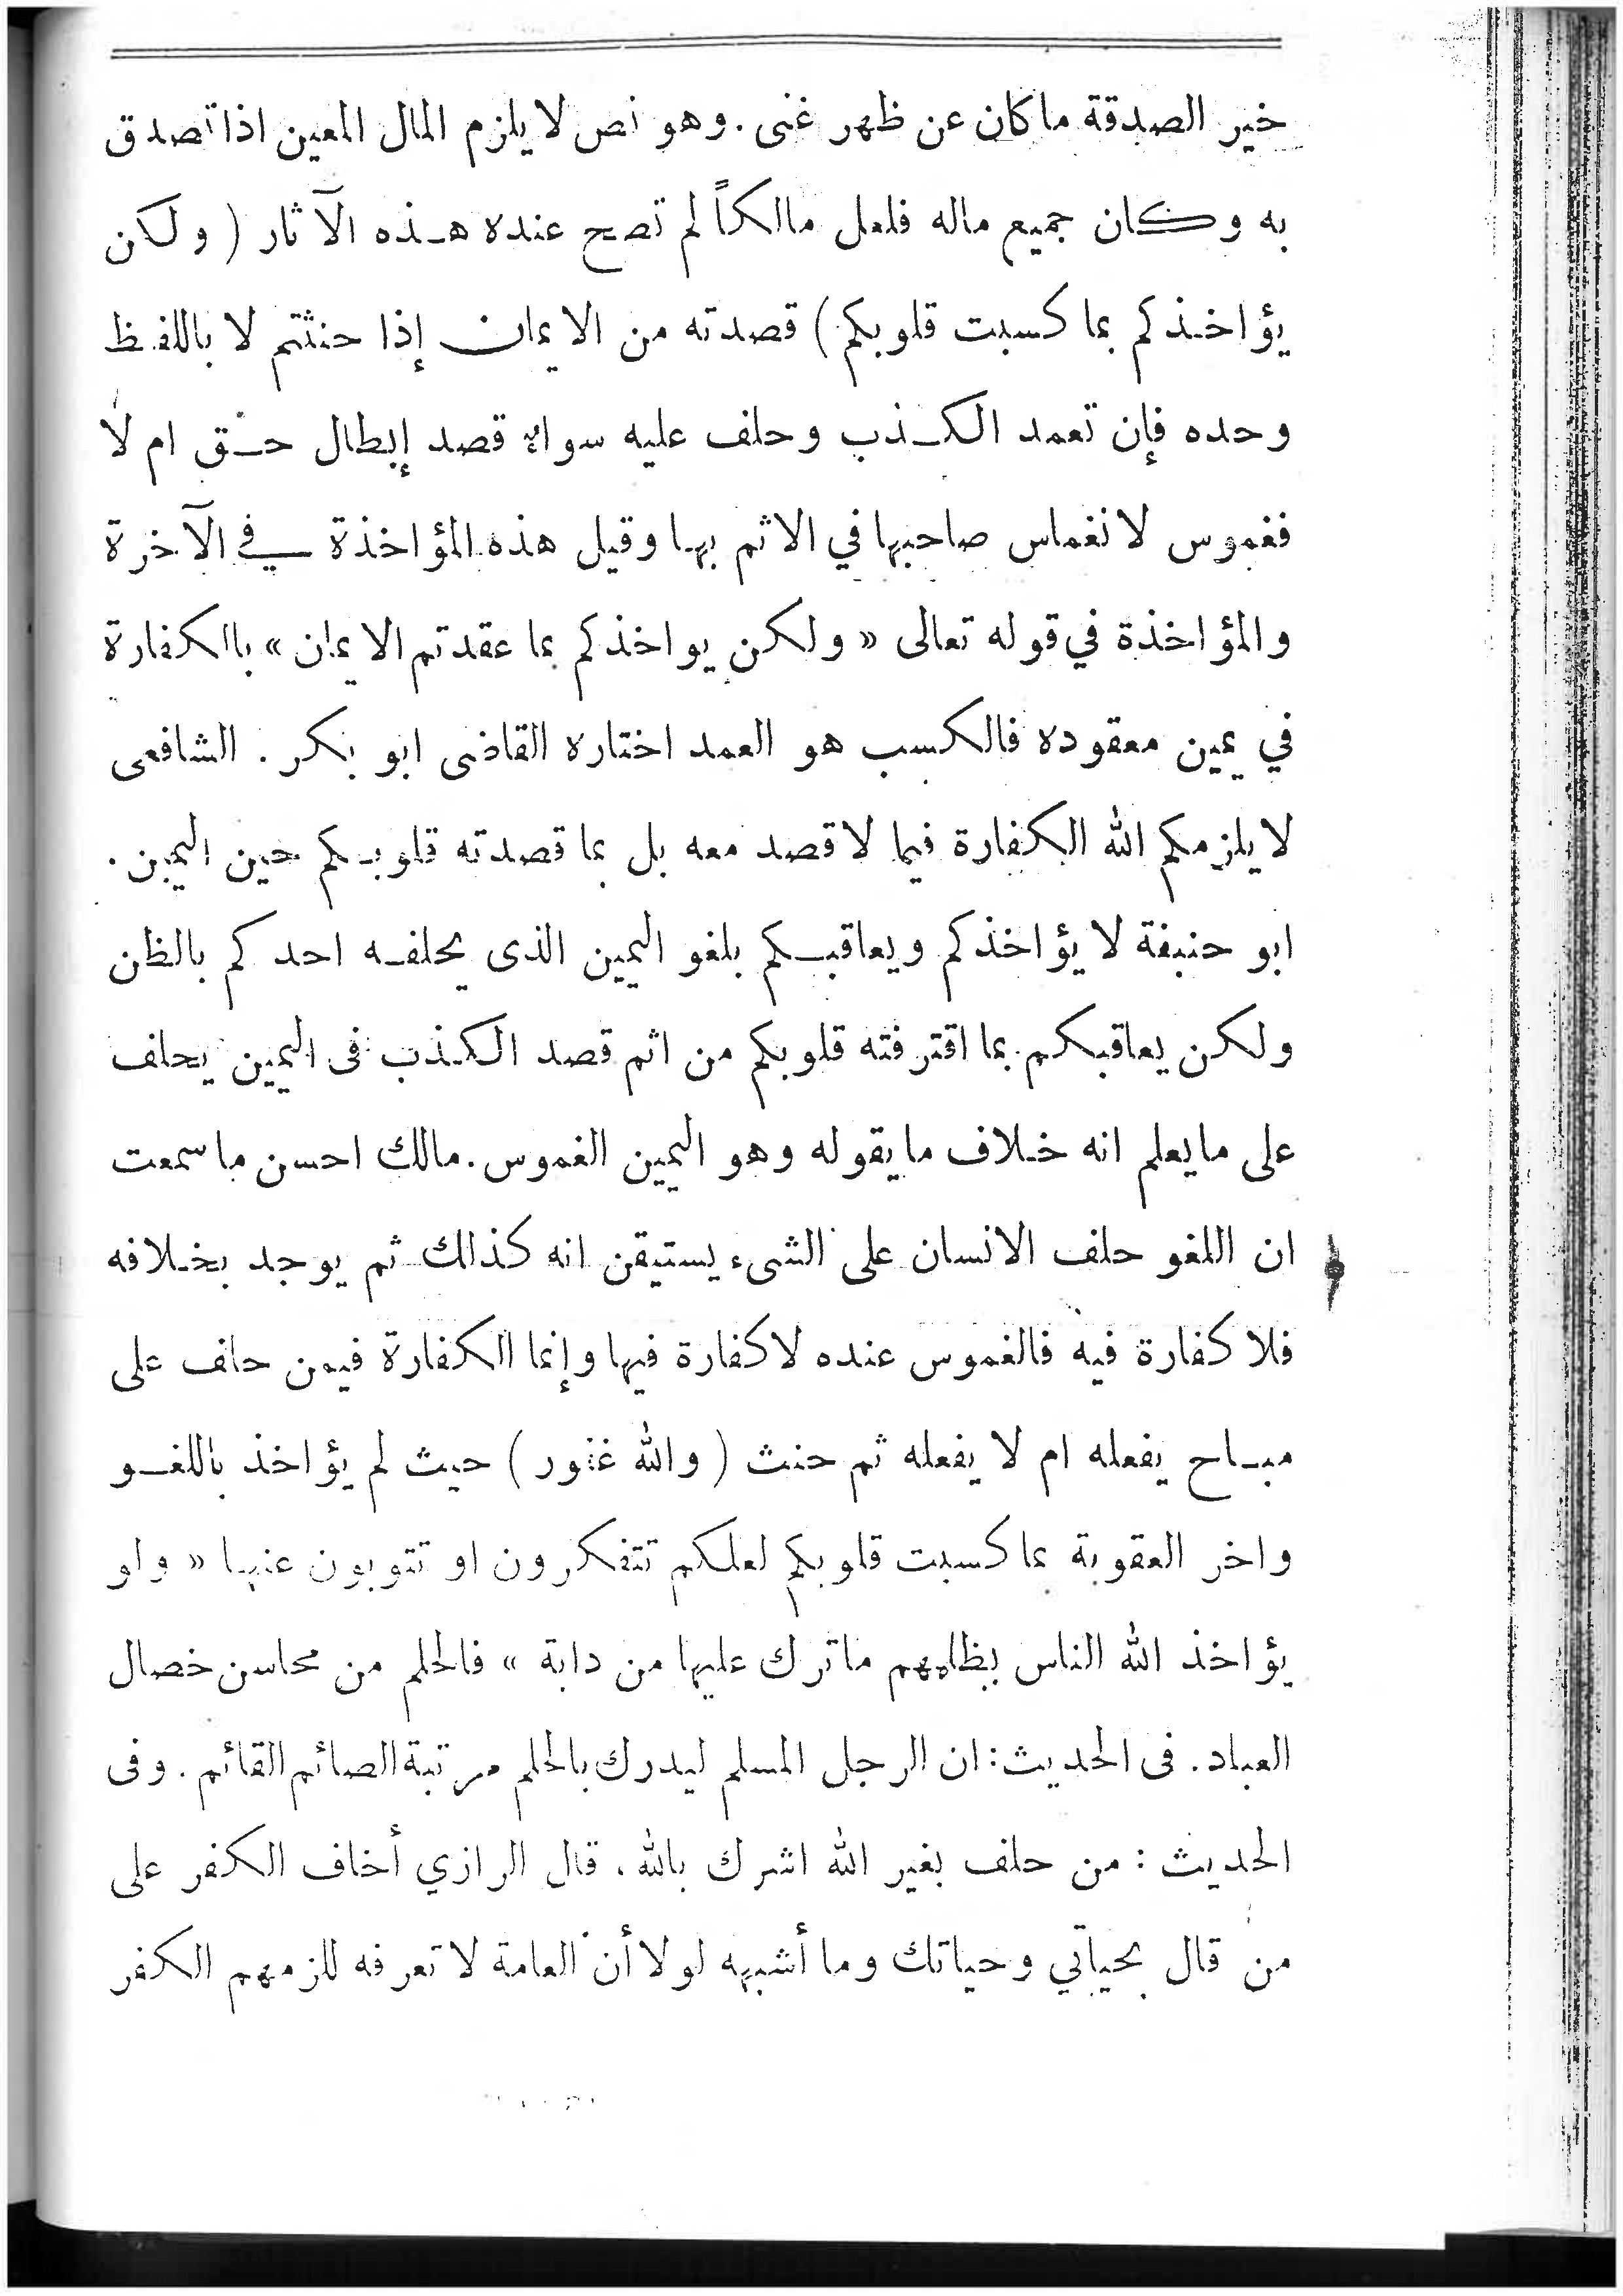 خير الصدقة ما كان عن ظهر غنى . وهو نص لا يلزم المال المعين اذا تصدق
به وكان جميع ماله فلعل مالكاً لم تصح عنده هذه الآثار ( ولكن
يؤاخذكم بما كسبت قلوبكم ) قصدته من الايمان إذا حنثتم لا باللفظ
وحده فإن تعمد الكذب وحلف عليه سواء قصد إبطال حق ام لا
فغموس لانغماس صاحبها في الاثم بها وقيل هذه المؤاخذة في الآخرة
والمؤاخذة في قوله تعالى « ولكن يواخذكم بما عقدتم الايمان » بالكفارة
في يمين معقوده فالكسب هو العمد اختاره القاضى ابو بكر . الشافعى
لا يلزمكم الله الكفارة فيما لا قصد معه بل بما قصدته قلوبكم حين اليمين .
ابو حنيفة لا يؤاخذكم ويعاقبكم بلغو اليمين الذى يحلفه احدكم بالظن
ولكن يعاقبكم بما اقترفته قلوبكم من اثم قصد الكذب فى اليمين يحلف
على ما يعلم انه خلاف ما يقوله وهو اليمين الغموس . مالك احسن ما سمعت
ان اللغو حلف الانسان على الشىء يستيقن انه كذلك ثم يوجد بخلافه
فلا كفارة فيه فالغموس عنده لا كفارة فيها وإنما الكفارة فيمن حلف على
مباح يفعله ام لا يفعله ثم حنث ( والله غفور ) حيث لم يؤاخذ باللغو
واخر العقوبة بما كسبت قلوبكم لعلكم تتفكرون او تتوبون عنها « ولو
يؤاخذ الله الناس بظلمهم ما ترك عليها من دابة » فالحلم من محاسن خصال
العباد . فى الحديث : ان الرجل المسلم ليدرك بالحلم مرتبة الصائم القائم . وفى
الحديث : من حلف بغير الله اشرك بالله ، قال الرازي أخاف الكفر على
من قال بحياتي وحياتك وما أشبهه لولا أن العامة لا تعرفه للزمهم الكفر